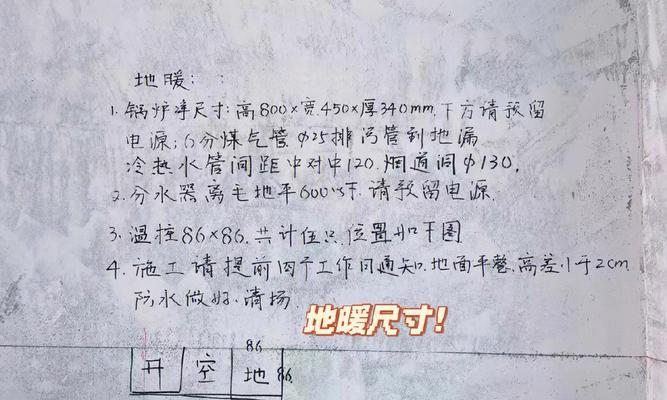 地暖：
1. 锅炉净尺寸：高800×宽450×厚340mm，下方请预留
电源；6分煤气管 Φ25排污管到地漏
冷热水管间距中对中120，烟道洞Φ130，
2. 分水器离毛地平600以下，请预留电源，
3. 温控86×86，共计伍只，位置如下图
4. 施工请提前四个工作日通知，地面平整，高差小于2cm
防水做好、清场
地暖尺寸！
86
开 空 地 86